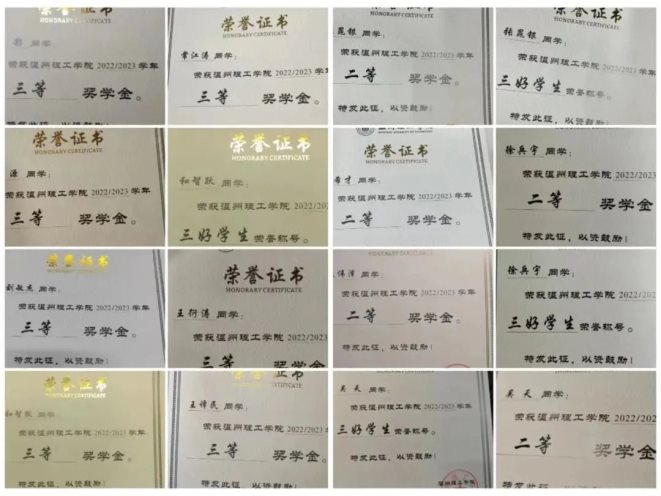 同学：
荣获温州理工学院 2022/2023 学年
三等 奖学金。
荣誉证书
HONORARY CERTIFICATE
常江涛 同学：
荣获温州理工学院 2022/2023
三等 奖学金。
昆银 同学：
荣获温州理工学院 2022/2023 学年
二等 奖学金。
特发此证，以资鼓励！
张昆银 同学：
荣获温州理工学院 2022/2023
三好学生 荣誉称号。
特发此证，以资鼓励！
荣誉证书
HONORARY CERTIFICATE
源 同学：
荣获温州理工学院 2022/2023 学年
三等 奖学金。
荣誉证书
HONORARY CERTIFICATE
和智跃 同学：
荣获温州理工学院 2022/20
三好学生 荣誉称号。
荣誉证书
HONORARY CERTIFICATE
希才 同学：
荣获温州理工学院 2022/2023 学年
二等 奖学金。
徐兵宇 同学：
荣获温州理工学院 2022/2023
二等 奖学金
特发此证，以资鼓励！
荣誉证书
HONORARY CERTIFICATE
刘敏杰 同学：
荣获温州理工学院 2022/2023 学年
三等 奖学金。
特发此证，以资鼓励！
荣誉证书
HONORARY CERTIFICATE
王衍涛 同学：
荣获温州理工学院 2022/2023
三等 奖学金。
伟泽 同学：
荣获温州理工学院 2022/2023 学年
二等 奖学金。
特发此证，以资鼓励！
徐兵宇 同学：
荣获温州理工学院 2022/2023
三好学生 荣誉称号。
特发此证，以资鼓励！
荣誉证书
HONORARY CERTIFICATE
和智跃 同学：
荣获温州理工学院 2022/2023 学年
三等 奖学金。
HONORARY CERTIFICATE
王谛民 同学：
荣获温州理工学院 2022/2023
三等 奖学金。
吴天 同学：
荣获温州理工学院 2022/2023 学年
三好学生 荣誉称号。
特发此证，以资鼓励！
温州理工学院
吴天 同学：
荣获温州理工学院 2022/202
二等 奖学金
特发此证，以资鼓励！